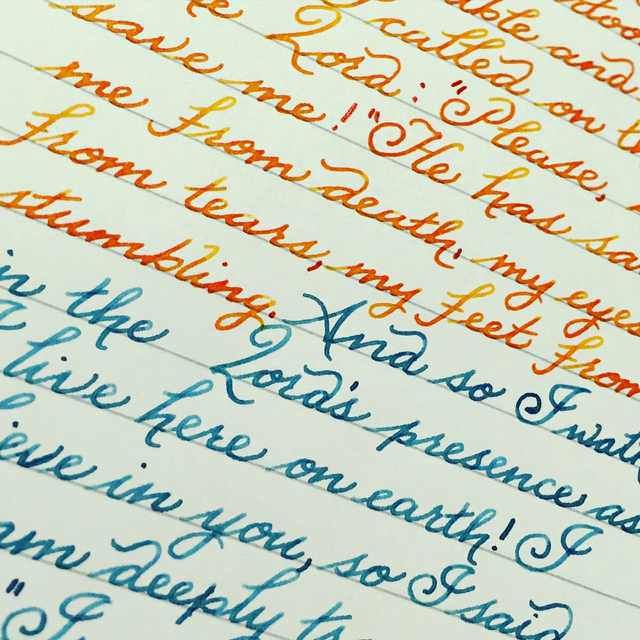 ble and
I called on th
he Lord: "Please,
save me!" "He has sa
me from death, my eyes
from tears, my feet from
stumbling. And so I walk
in the Lord's presence as
live here on earth! I
ieve in you, so I said
am deeply tr
"I